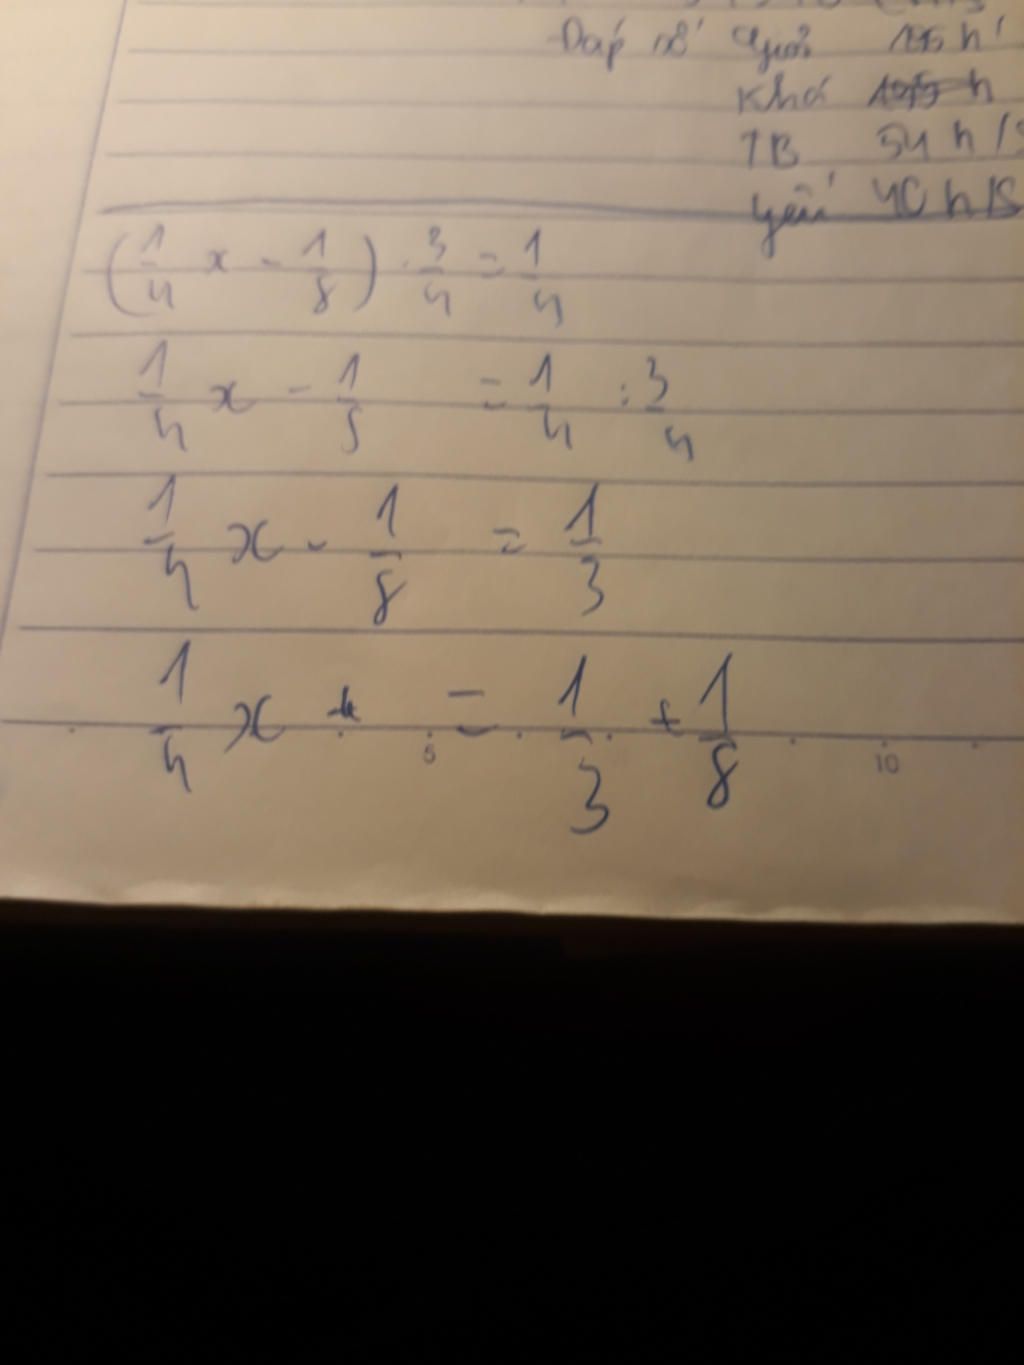 Đáp số Giỏi h
Khá h
TB 54 h/s
yếu 40 h/s
(1/4 x - 1/8) . 3/4 = 1/4
1/4 x - 1/8 = 1/4 : 3/4
1/4 x - 1/8 = 1/3
1/4 x = 1/3 + 1/8
5 10